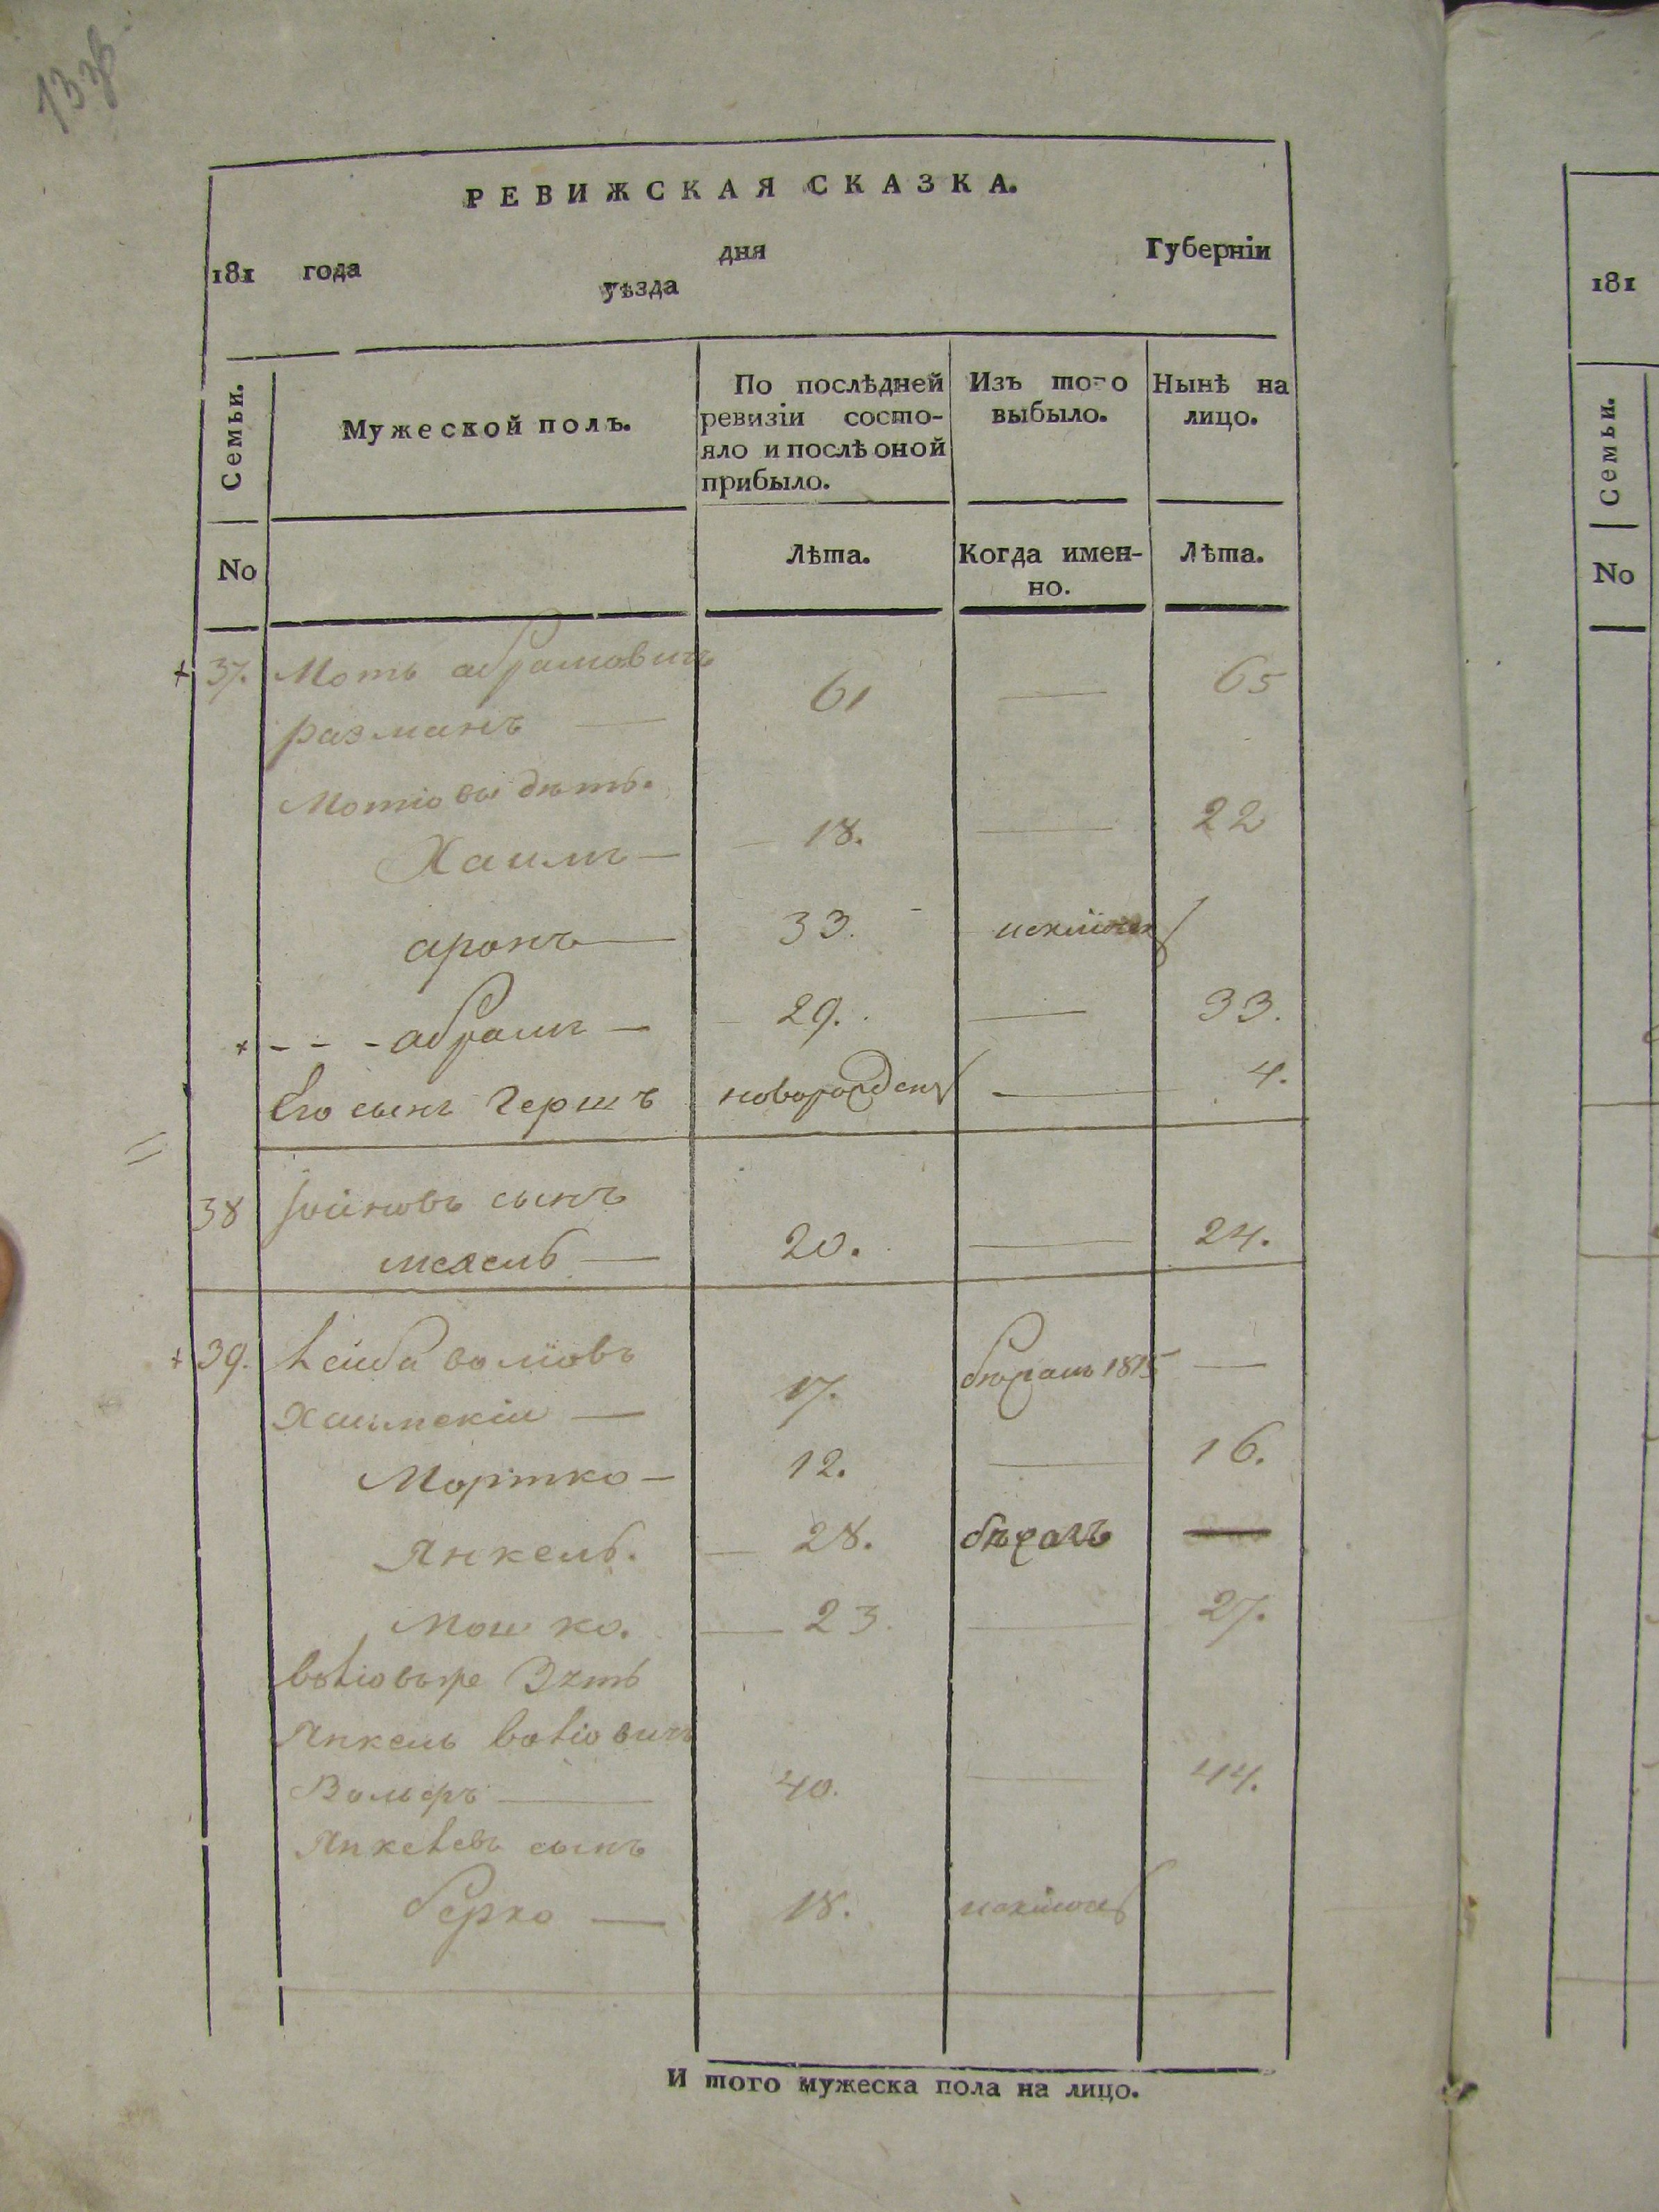 РЕВИЖСКАЯ СКАЗКА.
181 года дня Губерніи
уѣзда
Семьи. Мужеской полъ. По послѣдней ревизіи состояло и послѣ оной прибыло. Изъ того выбыло. Нынѣ на лицо.
No Лѣта. Когда именно. Лѣта.
37. Моть абрамовичъ
разманъ 61 — 65
Мотіовы дѣти.
Хаимъ — 18. — 22
аронъ — 33. исключен
абрамъ — 29. — 33.
Его сынъ Гершъ новорожден — 4.
38 сынъ
20. — 24.
39. Лейба
17. 1815 —
Мортко — 12. — 16.
Янкель. 28. бѣжалъ —
Мошко. 23. — 27.
Зять
Янкель
Вольфъ — 40. — 44.
Янкелевъ сынъ
берко — 18. исключен
И того мужеска пола на лицо.
181
Семьи.
No